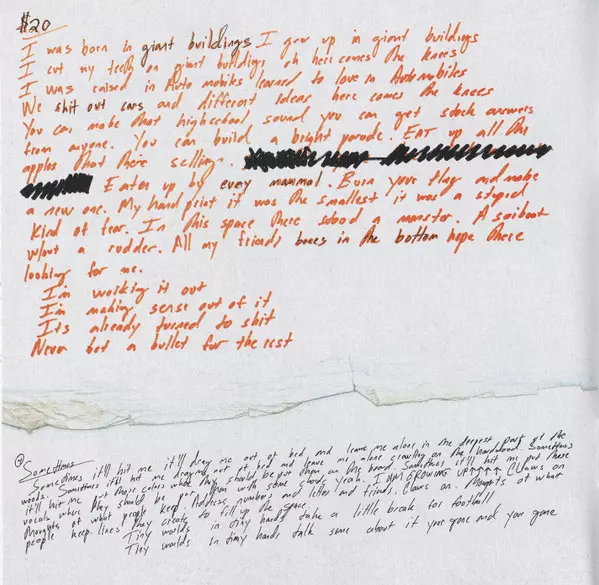 $20
I was born in giant buildings I grew up in giant buildings
I cut my teeth on giant buildings oh here comes the knees
I was raised in Auto mobiles learned to love in Automobiles
We shit out cars and different ideas here comes the knees
You can make that highschool sound you can get stock answers
from anyone. You can build a bright parade. EAT up all the
apples that there selling.
Eaten up by every mammal. Burn your flag and make
a new one. My hand print it was the smallest it was a stupid
kind of fear. In this space there stood a monster. A sailboat
w/out a rudder. All my friends bones in the bottom hope there
looking for me.
I'm working it out
I'm making sense out of it
Its already turned to shit
Never bet a bullet for the rest
Sometimes
Sometimes it'll hit me it'll drag me out of bed and leave me alone in the deepest part of the
woods. Sometimes it'll hit me drag me out of bed and leave me alone crawling on the hardwood. Sometimes
it'll hit me put those colors where they should be put them on the board. Sometimes it'll hit me put these
vocals where they should be put them with some chords yeah. I AM GROWING UP↑↑↑↑ Claws on
thoughts of what people keep. Address numbers and letters and friends. Claws on. thoughts of what
people keep. lines they create to fill up the space
Tiny worlds in tiny hands take a little break for football
Tiny worlds in tiny hands talk some about it your gone and your gone